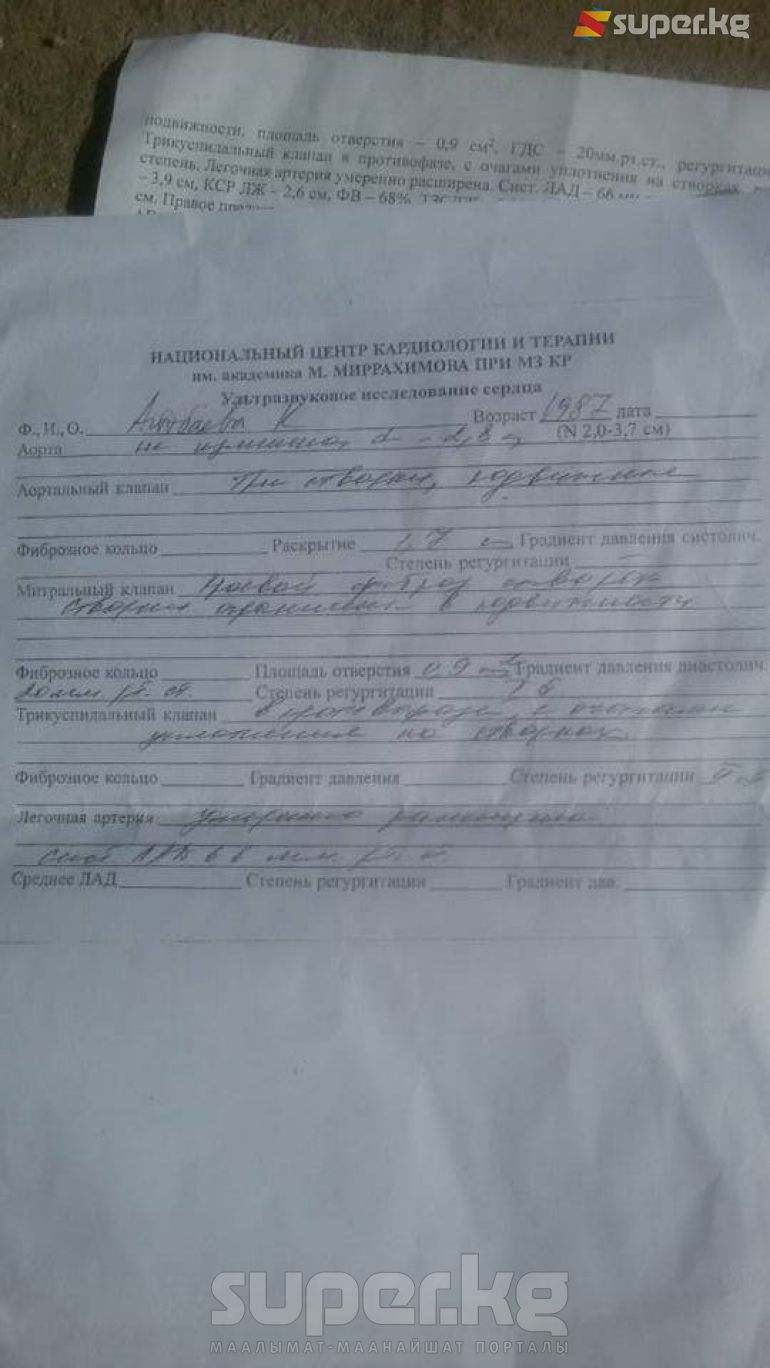 super.kg
подвижности, площадь отверстия – 0,9 см², ГДС – 20мм.рт.ст., регургитаци
Трикуспидальный клапан в противофазе, с очагами уплотнения на створках,
степень. Легочная артерия умеренно расширена. Сист. ЛАД – 66 мм
– 3,9 см, КСР ЛЖ – 2,6 см, ФВ – 68%,
см, Правое
НАЦИОНАЛЬНЫЙ ЦЕНТР КАРДИОЛОГИИ И ТЕРАПИИ
им. академика М. МИРРАХИМОВА ПРИ МЗ КР
Ультразвуковое исследование сердца
Ф., И., О. К Возраст 1987 дата
Аорта не изменена, d – (N 2,0-3,7 см)
Аортальный клапан Три створки, подвижные
Фиброзное кольцо Раскрытие 1,7 см Градиент давления систолич.
Степень регургитации –
Митральный клапан фиброз створок
створки ограничены в подвижности
Фиброзное кольцо Площадь отверстия 0,9 см² Градиент давления диастолич.
20 мм рт. ст. Степень регургитации
Трикуспидальный клапан в противофазе, с очагами
уплотнения на створках
Фиброзное кольцо Градиент давления Степень регургитации
Легочная артерия Умеренно расширена
сист. ЛАД 66 мм рт. ст.
Среднее ЛАД Степень регургитации Градиент дав.
super.kg
МААЛЫМАТ-МААНАЙШАТ ПОРТАЛЫ